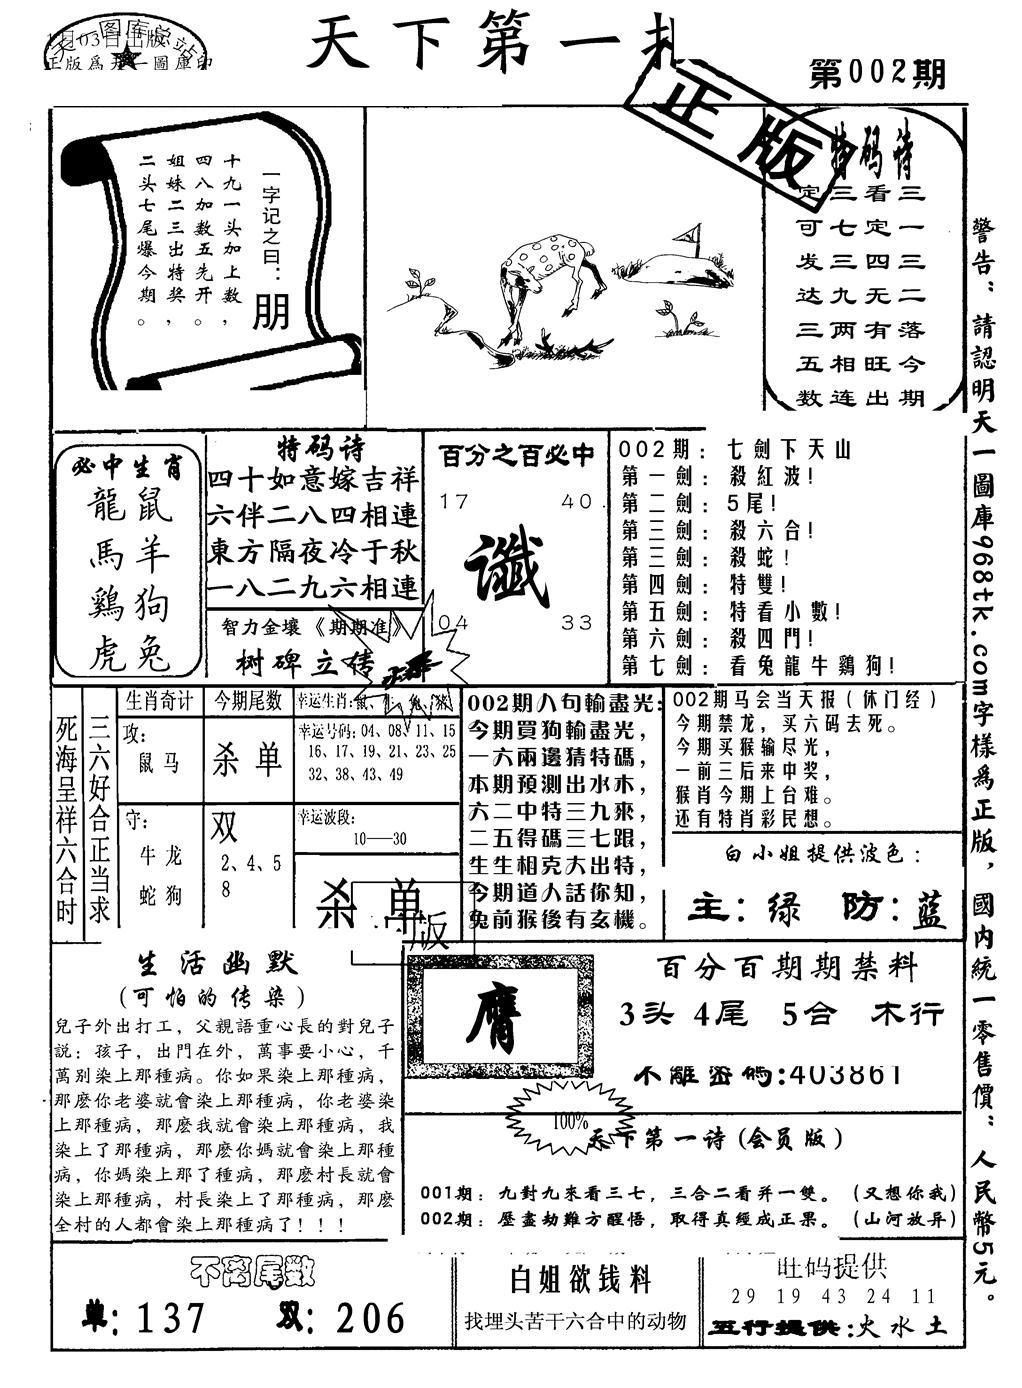 天下第一
第002期
03日出版
天一图库总站
正版
一字记之曰：朋
十九一头加上数，
四八加数五先开。
姐妹二三出特奖，
二头七尾爆今期。
特码诗
三一三二落今期
看定四无有旺出
三七三九两相连
定可发达三五数
警告：請認明天一圖庫968tk.com字樣為正版，國内統一零售價：人民幣5元。
必中生肖
龍鼠
馬羊
鷄狗
虎兔
特码诗
四十如意嫁吉祥
六伴二八四相連
東方隔夜冷于秋
一八二九六相連
智力金壤《期期准》
树碑立传
百分之百必中
17 40
谶
04 33
002期：七劍下天山
第一劍：殺紅波!
第二劍：5尾!
第三劍：殺六合!
第三劍：殺蛇!
第四劍：特雙!
第五劍：特看小數!
第六劍：殺四門!
第七劍：看兔龍牛鷄狗!
三六好合正当求
死海呈祥六合时
生肖奇计
攻：
鼠马
守：
牛龙
蛇狗
今期尾数
杀单
双
2、4、5
8
幸运生肖：鼠、
幸运号码：04、08、11、15
16、17、19、21、23、25
32、38、43、49
幸运波段：
10—30
杀单
版
002期八句輸盡光：
今期買狗輸盡光，
一六兩邊猜特碼，
本期預測出水木，
六二中特三九來，
二五得碼三七跟，
生生相克大出特，
今期道人話你知，
兔前猴後有玄機。
002期马会当天报（休门经）
今期禁龙，买六码去死。
今期买猴输尽光，
一前三后来中奖，
猴肖今期上台难。
还有特肖彩民想。
白小姐提供波色：
主：绿 防：蓝
生活幽默
（可怕的传染）
兒子外出打工，父親語重心長的對兒子
説：孩子，出門在外，萬事要小心，千
萬别染上那種病。你如果染上那種病，
那麽你老婆就會染上那種病，你老婆染
上那種病，那麽我就會染上那種病，我
染上了那種病，那麽你媽就會染上那種
病，你媽染上那了種病，那麽村長就會
染上那種病，村長染上了那種病，那麽
全村的人都會染上那種病了！！！
膺
百分百期期禁料
3头 4尾 5合 木行
不離密碼：403861
100%
天下第一诗(会员版)
001期：九對九來看三七，三合二看并一雙。（又想你我）
002期：歷盡劫難方醒悟，取得真經成正果。（山河放异）
不离尾数
单：137 双：206
白姐欲钱料
找埋头苦干六合中的动物
吐码提供
29 19 43 24 11
五行提供：火水土